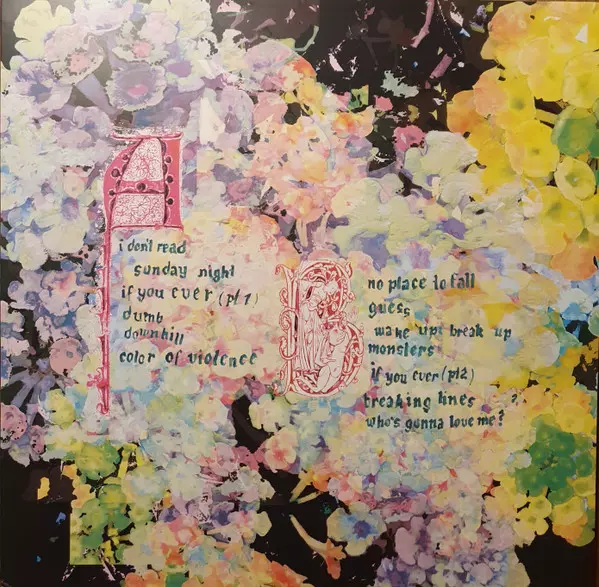 A
i don't read
sunday night
if you ever (pt 1)
dumb
downhill
color of violence
B
no place to fall
guess
wake up! break up
monsters
if you ever (pt2)
breaking lines
who's gonna love me?
?